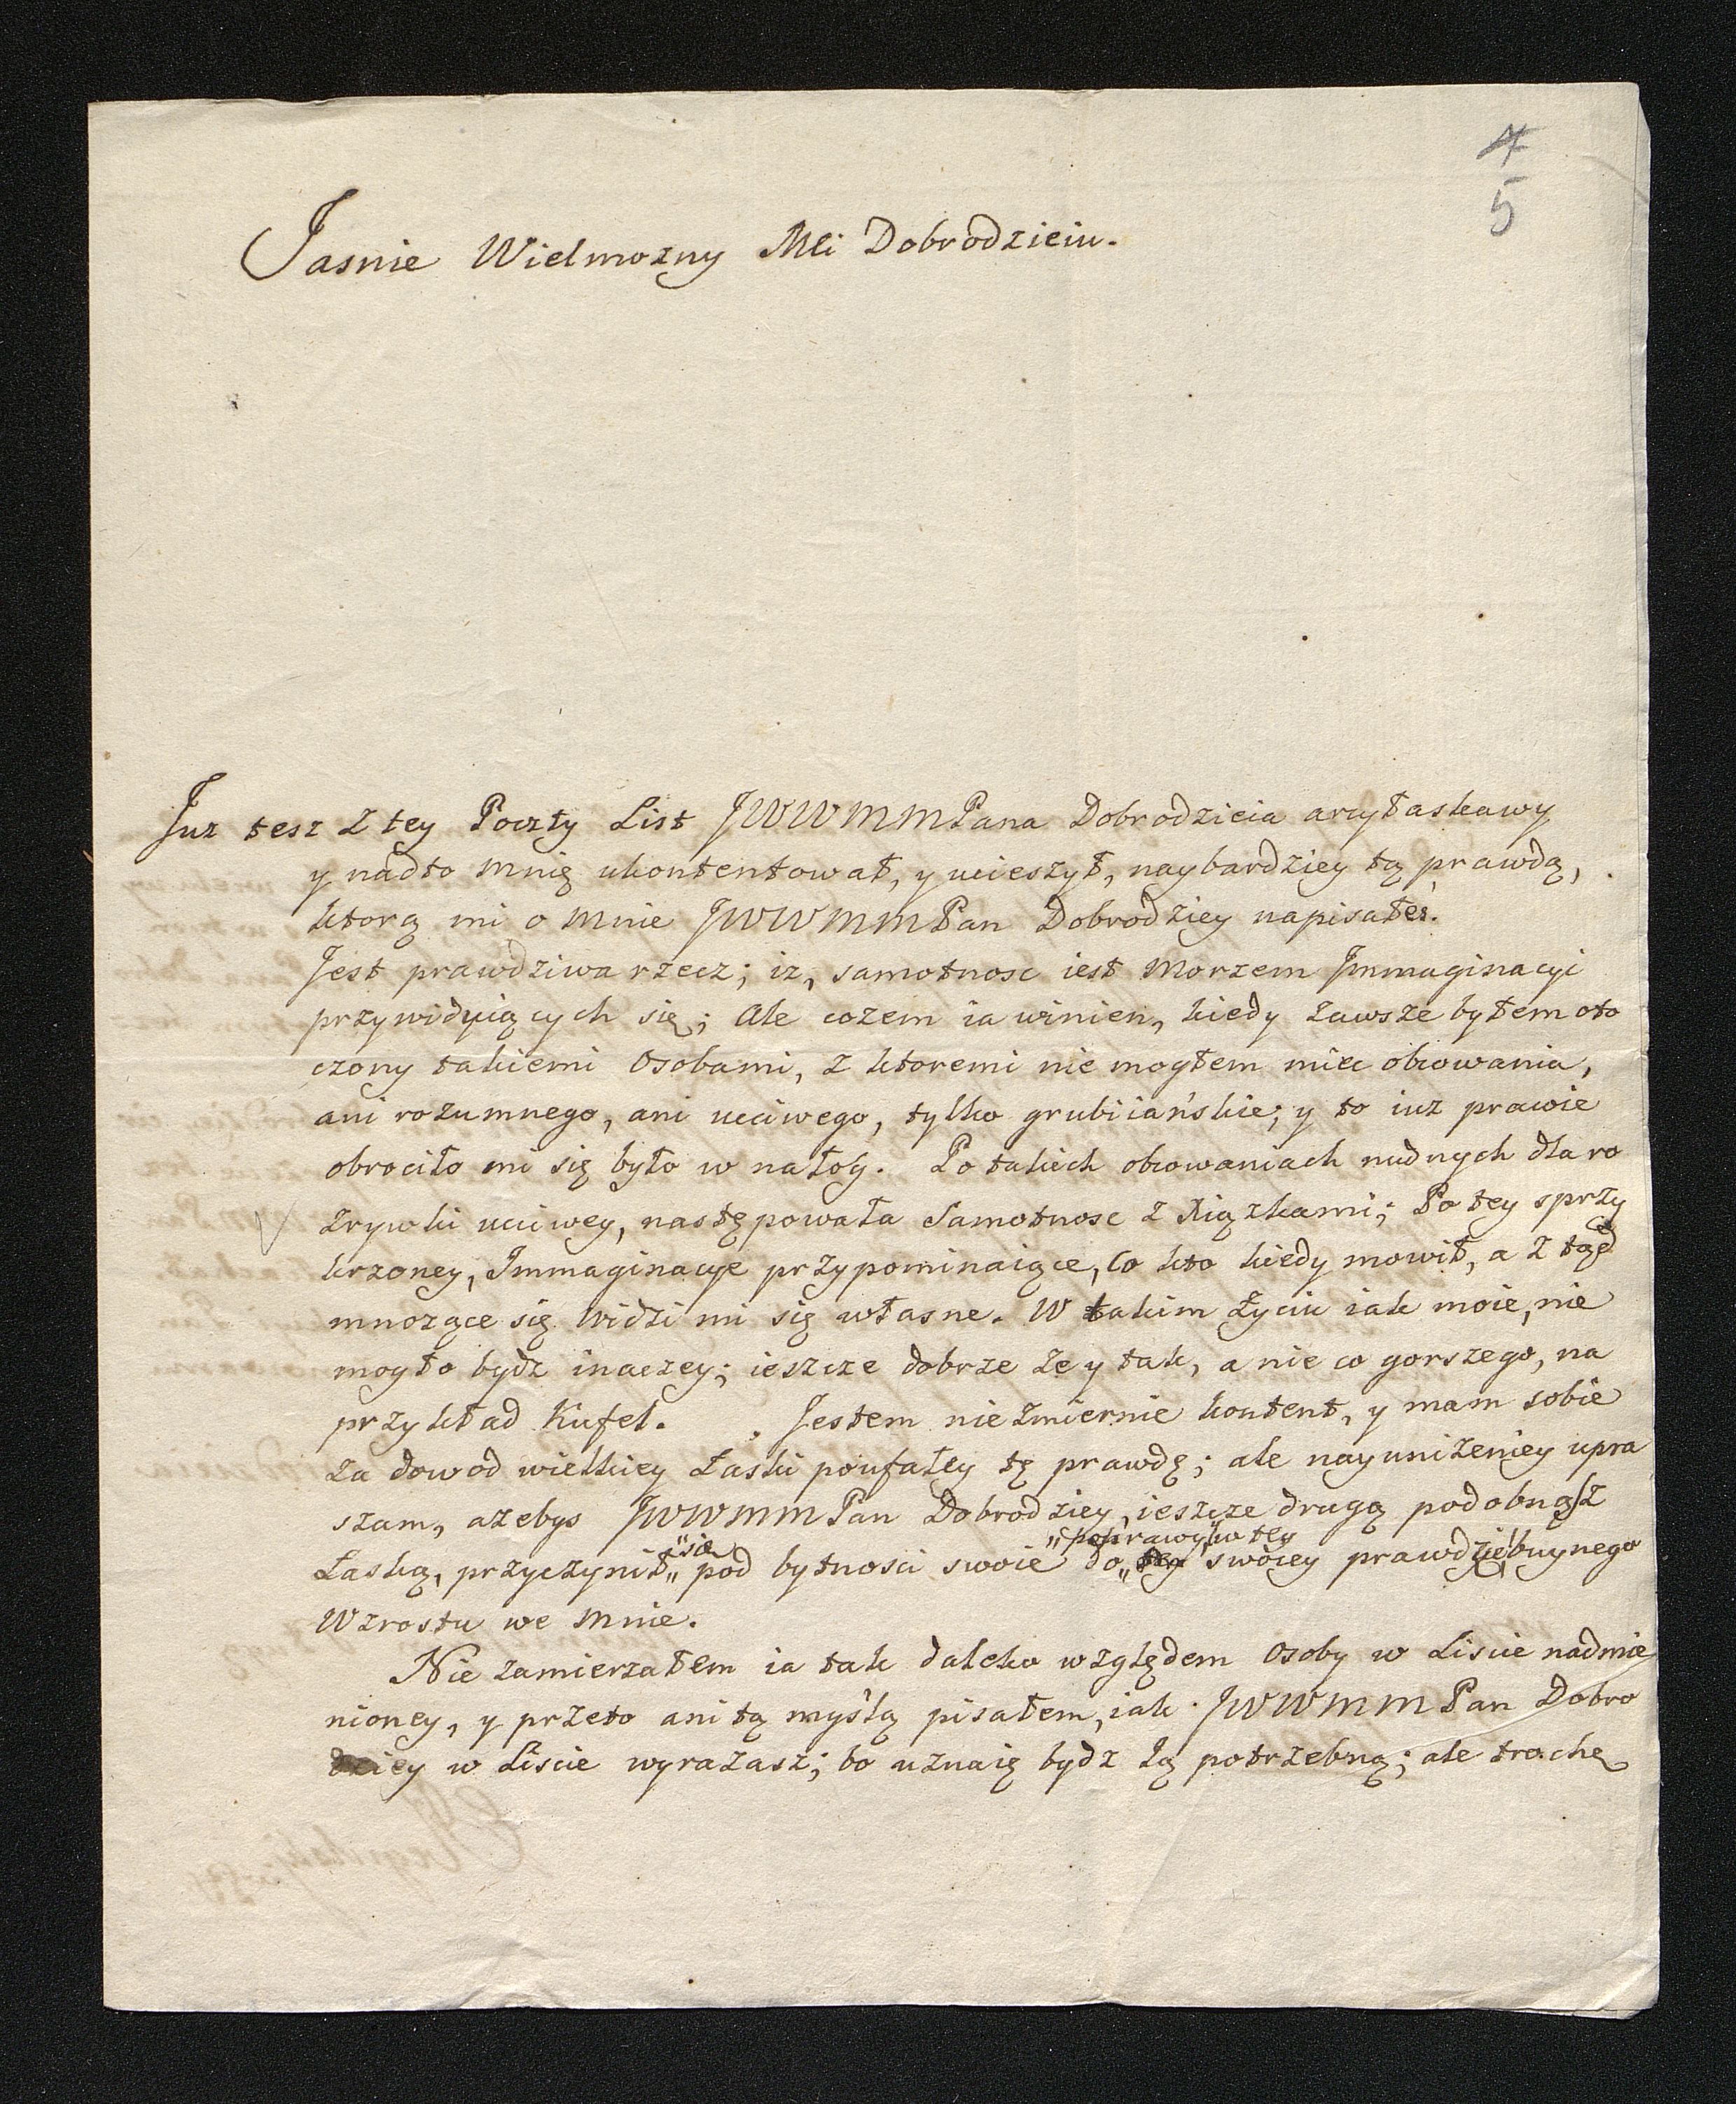 4
5
Jasnie Wielmozny Mci Dobrodzieiu.
Juz tesz z tey Poczty List JWWMMPana Dobrodzieia arcyłaskawy
y nadto mnię ukontentował, y ucieszył, naybardziey tą prawdą,
ktorą mi o mnie JWWMMPan Dobrodziey napisałes.
Jest prawdziwa rzecz; iz, samotnosc iest morzem Jmmaginacyi
przywiduiących się; Ale cozem ia winien, kiedy zawsze byłem oto
czony takiemi Osobami, z ktoremi nie mogłem miec obcowania,
ani rozumnego, ani ucciwego, tylko grubiiańskie; y to iuz prawie
obrociło mi się było w nałog. Po takich obcowaniach nudnych dla ro
zrywki ucciwey, następowała Samotnosc z Xiązkami; Po tey sprzy
krzoney, Jmmaginacye przypominaiące, Co kto kiedy mowił, a z tąd
mnozące się widzi mi się własne. W takim życiu iak moie, nie
mogło bydz inaczey; ieszcze dobrze ze y tak, a nie co gorszego, na
przykład Kufel. Jestem niezmiernie kontent, y mam sobie
za dowod wielkiey Łaski poufałey tę prawdę; ale nayunizeniey upra
szam, azebys JWWMMPan Dobrodziey, ieszcze drugą podobną z
Łaską, przyczynił „się „ pod bytnosci swoie do „poprawy w tey „ swoiey prawdzie buynego
Wzrostu we mnie.
Nie zamierzałem ia tak daleko względem Osoby w Liscie nadmie
nioney, y przeto ani tą myślą pisałem, iak JWWMMPan Dobro
dziey w Liscie wyrazasz; bo uznaię bydz Ią potrzebną; ale trochę